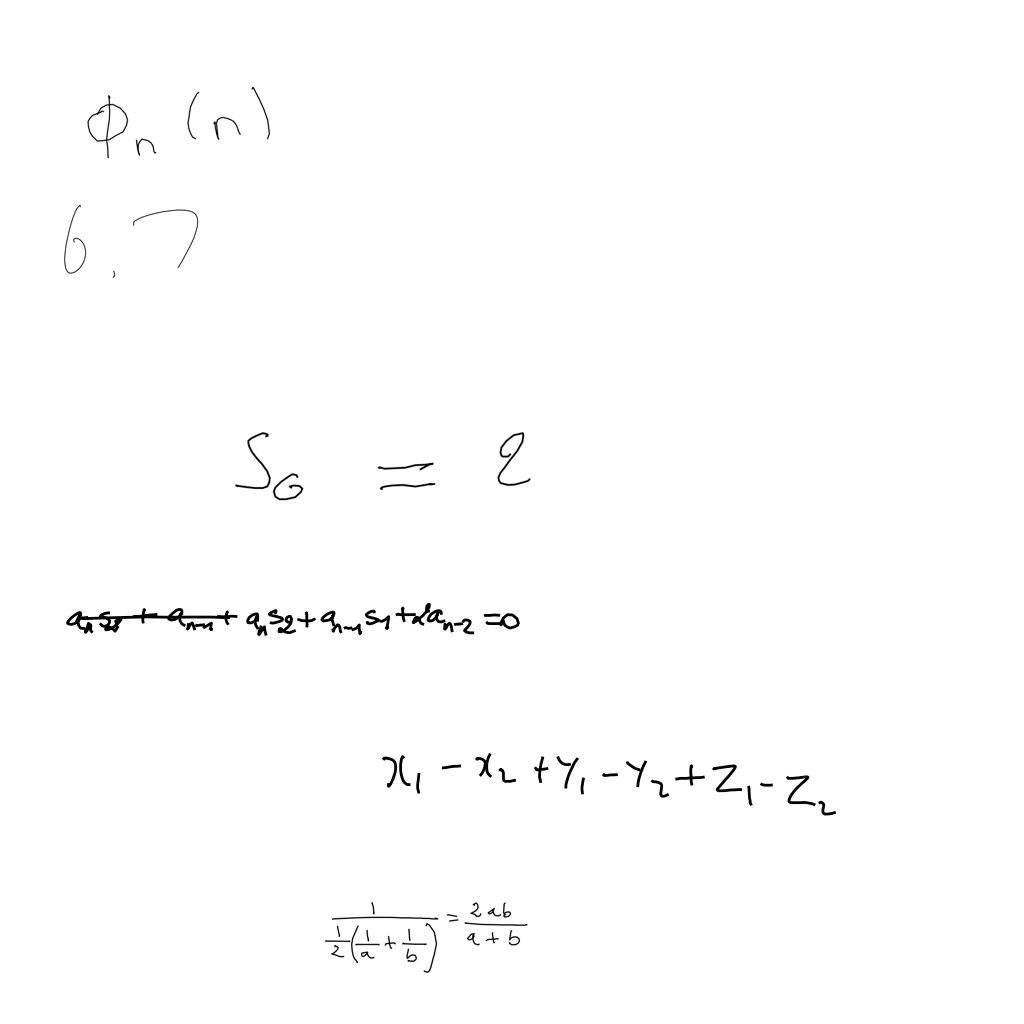 ϕₙ(n)
6.7
S₆ = 2
aₙs₂ + aₙ₋₁ + aₙs₂ + aₙ₋₁s₁ + 2aₙ₋₂ = 0
x₁ - x₂ + y₁ - y₂ + z₁ - z₂
1/(1/2(1/a + 1/b)) = 2ab/(a + b)